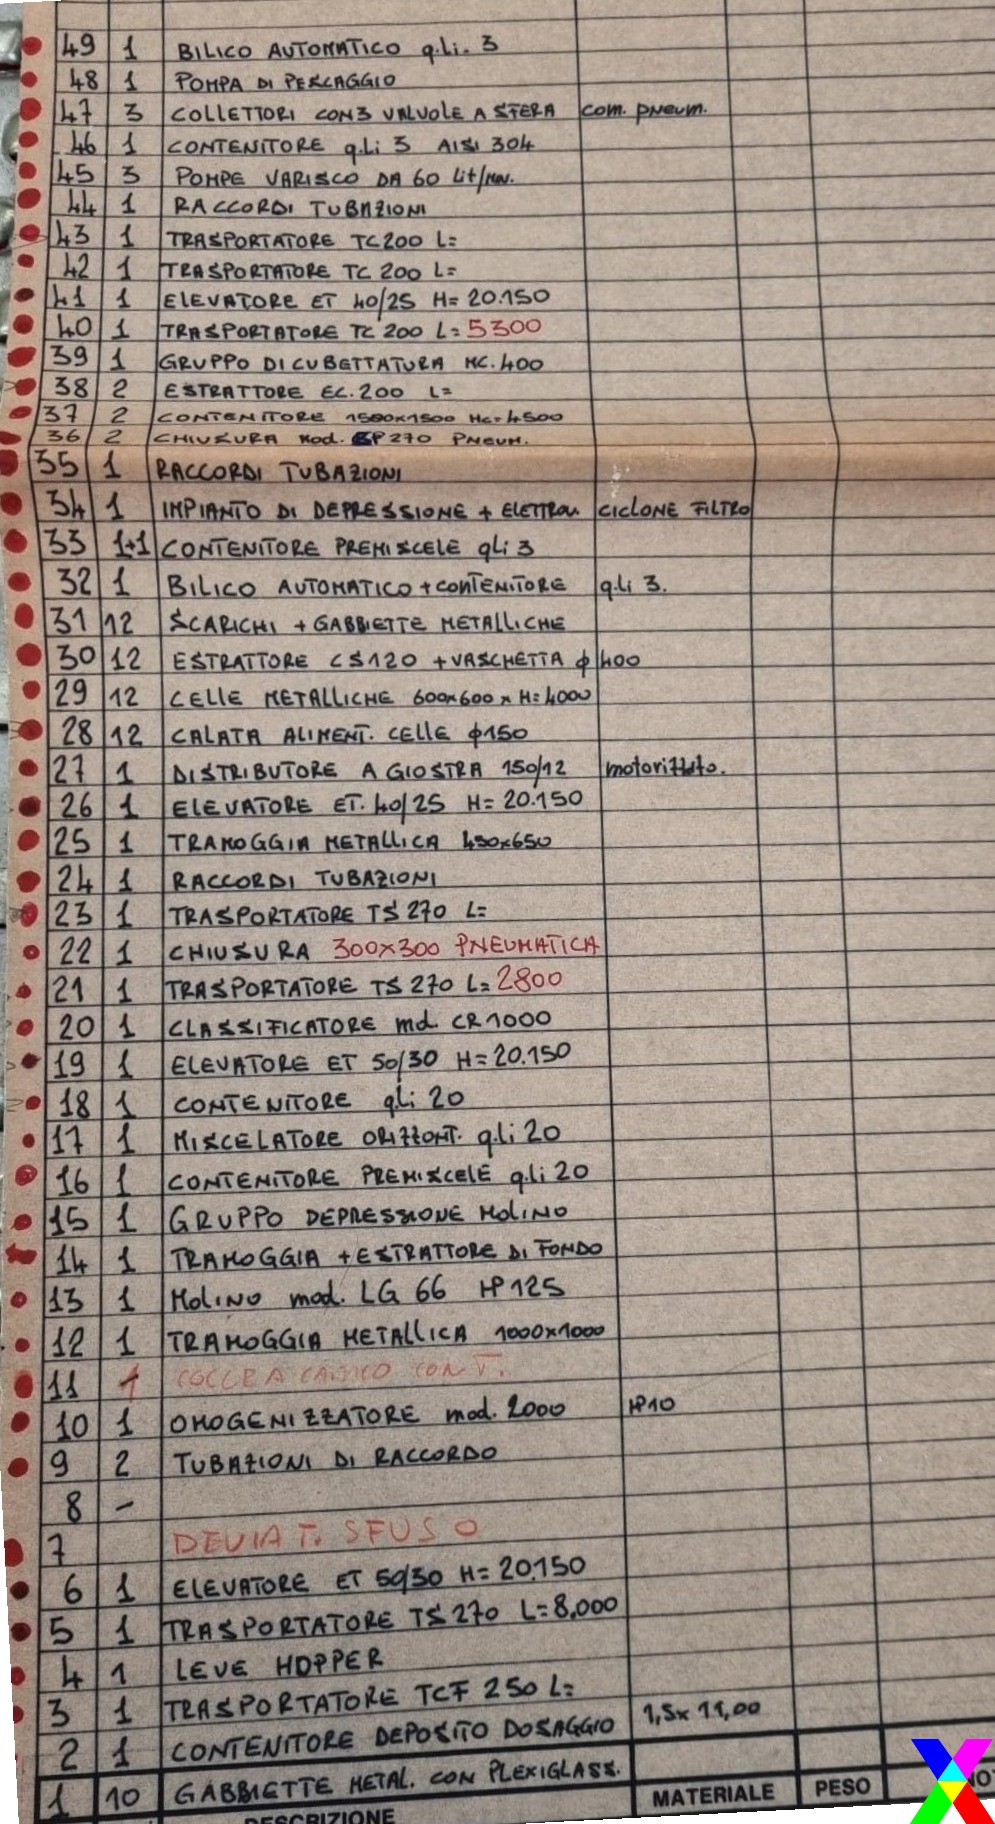 49 1 BILICO AUTOMATICO q.li. 3
48 1 POMPA DI PESCAGGIO
47 3 COLLETTORI CON 3 VALVOLE A SFERA com. pneum.
46 1 CONTENITORE q.li 3 AISI 304
45 3 POMPE VARISCO DA 60 Lit/MIN.
44 1 RACCORDI TUBAZIONI
43 1 TRASPORTATORE TC 200 L=
42 1 TRASPORTATORE TC 200 L=
41 1 ELEVATORE ET 40/25 H= 20.150
40 1 TRASPORTATORE TC 200 L= 5300
39 1 GRUPPO DI CUBETTATURA MC. 400
38 2 ESTRATTORE EC. 200 L=
37 2 CONTENITORE 1500x1500 Hc= 4500
36 2 CHIUSURA Mod. P 270 PNEUM.
35 1 RACCORDI TUBAZIONI
34 1 IMPIANTO DI DEPRESSIONE + ELETTROV. CICLONE FILTRO
33 1+1 CONTENITORE PREMISCELE qli 3
32 1 BILICO AUTOMATICO + CONTENITORE q.li 3.
31 12 SCARICHI + GABBIETTE METALLICHE
30 12 ESTRATTORE CS 120 + VASCHETTA φ 400
29 12 CELLE METALLICHE 600x600 x H= 4000
28 12 CALATA ALIMENT. CELLE φ150
27 1 DISTRIBUTORE A GIOSTRA 150/12 motorizzato.
26 1 ELEVATORE ET. 40/25 H= 20.150
25 1 TRAMOGGIA METALLICA 450x650
24 1 RACCORDI TUBAZIONI
23 1 TRASPORTATORE TS 270 L=
22 1 CHIUSURA 300x300 PNEUMATICA
21 1 TRASPORTATORE TS 270 L= 2800
20 1 CLASSIFICATORE md. CR 1000
19 1 ELEVATORE ET 50/30 H= 20.150
18 1 CONTENITORE qli 20
17 1 MISCELATORE ORIZZONT. q.li 20
16 1 CONTENITORE PREMISCELE q.li 20
15 1 GRUPPO DEPRESSIONE MOLINO
14 1 TRAMOGGIA + ESTRATTORE DI FONDO
13 1 MOLINO mod. LG 66 HP 125
12 1 TRAMOGGIA METALLICA 1000x1000
11 1 COCLEA CARICO CONT.
10 1 OMOGENIZZATORE mod. 2000 HP10
9 2 TUBAZIONI DI RACCORDO
8 -
7 DEVIAT. SFUSO
6 1 ELEVATORE ET 50/30 H= 20.150
5 1 TRASPORTATORE TS 270 L= 8.000
4 1 LEVE HOPPER
3 1 TRASPORTATORE TCF 250 L=
2 1 CONTENITORE DEPOSITO DOSAGGIO 1,5x 11,00
1 10 GABBIETTE METAL. CON PLEXIGLASS.
DESCRIZIONE MATERIALE PESO NOT